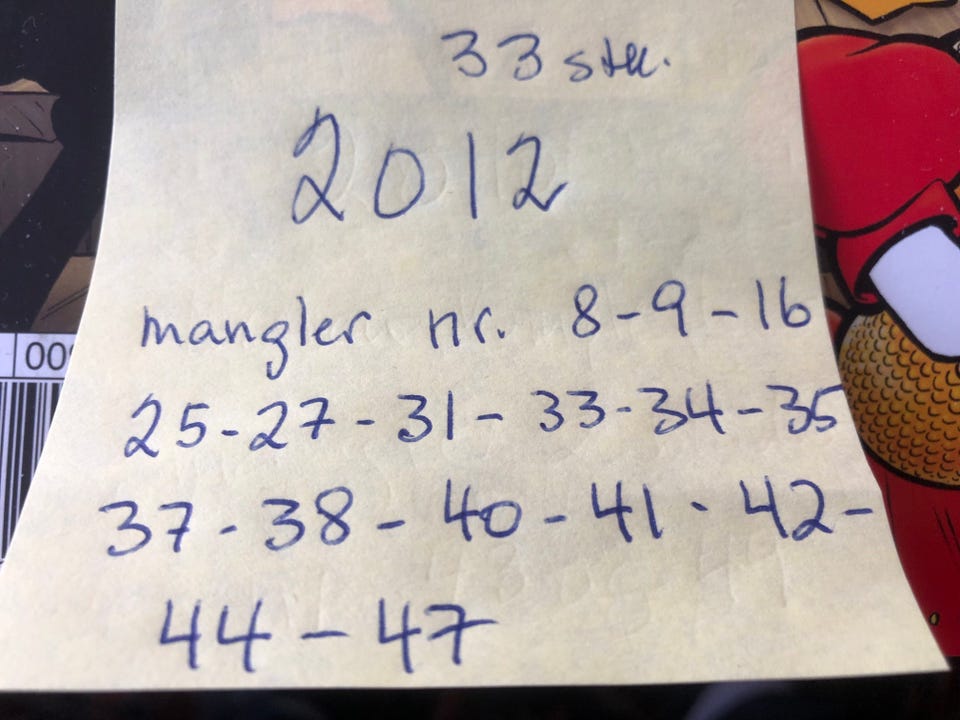 33 stk.
2012
mangler nr. 8-9-16
25-27-31-33-34-35
37-38-40-41-42-
44-47
00